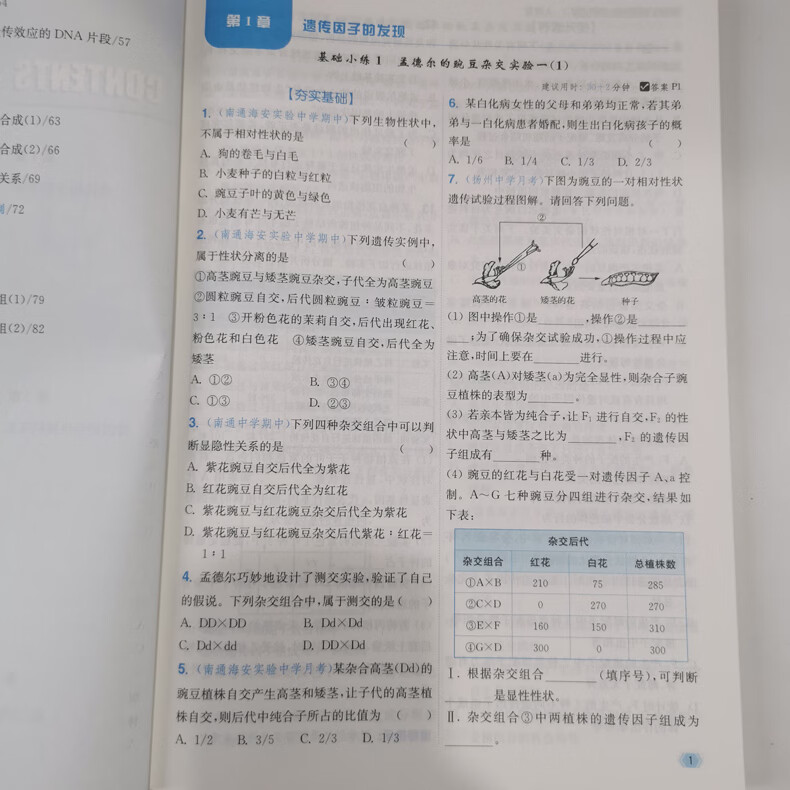 传效应的 DNA 片段/57
合成(1)/63
合成(2)/66
关系/69
/72
组(1)/79
组(2)/82
CONTENTS
第 1 章
遗传因子的发现
基础小练 1 孟德尔的豌豆杂交实验一(1)
建议用时: 分钟 答案 P1
【夯实基础】
1. (南通海安实验中学期中)下列生物性状中,
不属于相对性状的是 ( )
A. 狗的卷毛与白毛
B. 小麦种子的白粒与红粒
C. 豌豆子叶的黄色与绿色
D. 小麦有芒与无芒
2. (南通海安实验中学期中)下列遗传实例中,
属于性状分离的是 ( )
①高茎豌豆与矮茎豌豆杂交,子代全为高茎豌豆
②圆粒豌豆自交,后代圆粒豌豆∶皱粒豌豆=
3∶1 ③开粉色花的茉莉自交,后代出现红花、
粉色花和白色花 ④矮茎豌豆自交,后代全为
矮茎
A. ①② B. ③④
C. ①③ D. ②③
3. (南通中学期中)下列四种杂交组合中可以判
断显隐性关系的是 ( )
A. 紫花豌豆自交后代全为紫花
B. 红花豌豆自交后代全为红花
C. 紫花豌豆与红花豌豆杂交后代全为紫花
D. 紫花豌豆与红花豌豆杂交后代紫花∶红花=
1∶1
4. 孟德尔巧妙地设计了测交实验,验证了自己
的假说。下列杂交组合中,属于测交的是( )
A. DD×DD B. Dd×Dd
C. Dd×dd D. DD×Dd
5. (南通海安实验中学月考)某杂合高茎(Dd)的
豌豆植株自交产生高茎和矮茎,让子代的高茎植
株自交,则后代中纯合子所占的比值为 ( )
A. 1/2 B. 3/5 C. 2/3 D. 1/3
6. 某白化病女性的父母和弟弟均正常,若其弟
弟与一白化病患者婚配,则生出白化病孩子的概
率是 ( )
A. 1/6 B. 1/4 C. 1/3 D. 2/3
7. (扬州中学月考)下图为豌豆的一对相对性状
遗传试验过程图解。请回答下列问题。
②
①
高茎的花 矮茎的花 种子
(1) 图中操作①是________,操作②是________
____;为了确保杂交试验成功,①操作过程中应
注意,时间上要在________进行。
(2) 高茎(A)对矮茎(a)为完全显性,则杂合子豌
豆植株的表型为________。
(3) 若亲本皆为纯合子,让 F₁ 进行自交,F₂ 的性
状中高茎与矮茎之比为________,F₂ 的遗传因
子组成有________种。
(4) 豌豆的红花与白花受一对遗传因子 A、a 控
制。A～G 七种豌豆分四组进行杂交,结果如
下表:
杂交后代
杂交组合 红花 白花 总植株数
①A×B 210 75 285
②C×D 0 270 270
③E×F 160 150 310
④G×D 300 0 300
Ⅰ. 根据杂交组合________(填序号),可判断
________是显性性状。
Ⅱ. 杂交组合③中两植株的遗传因子组成为
________。
1